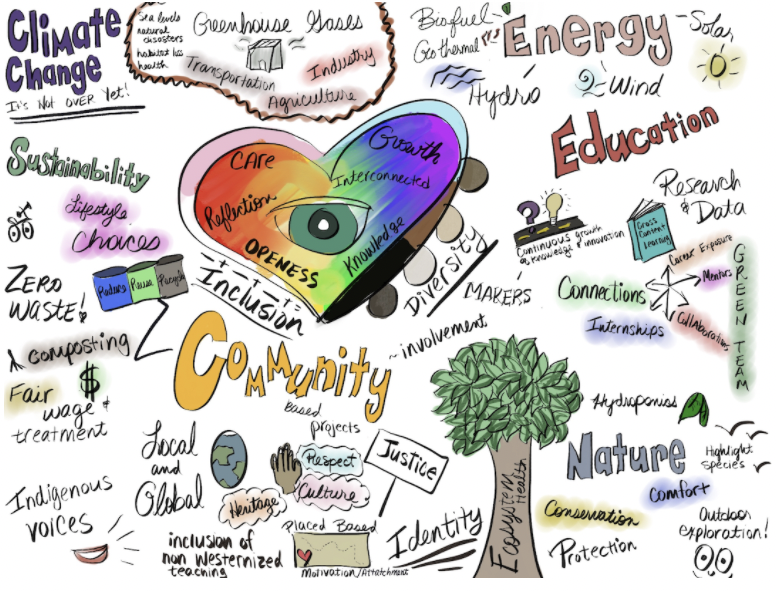 Climate
Change
It's Not over Yet!
Sea levels
natural
disasters
habitat loss
health
Greenhouse Gases
Transportation
Industry
Agriculture
Biofuel
Geothermal
Hydro
Energy
Solar
Wind
Education
Sustainability
Lifestyle
Choices
ZERO
WASTE!
Reduce
Reuse
Recycle
composting
$
Fair
wage +
treatment
CARE
Growth
Interconnected
Reflection
Knowledge
OPENESS
Inclusion
Diversity
MAKERS
?
Continuous growth
of knowledge & innovation
Cross
Content
Learning
Research
& Data
Career Exposure
Mentors
Connections
Internships
Collaborations
GREEN TEAM
Community
~involvement
Based
projects
Local
and
Global
Respect
Culture
Heritage
Justice
Placed Based
Motivation/Attatchment
Identity
Indigenous
voices
inclusion of
non Westernized
teaching
Ecosystem
Health
Hydroponics
Nature
Highlight
Species
Comfort
Conservation
Protection
Outdoor
exploration!